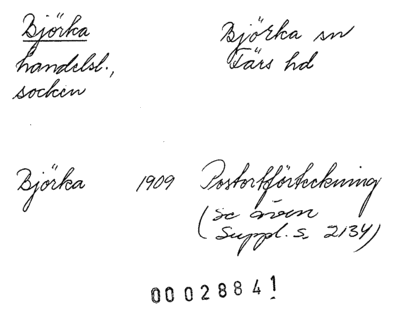 Björka
handelsl.,
socken
Björka sn
Färs hd
Björka 1909 Postortförteckning
(se även
Suppl. s. 2134)
00028841